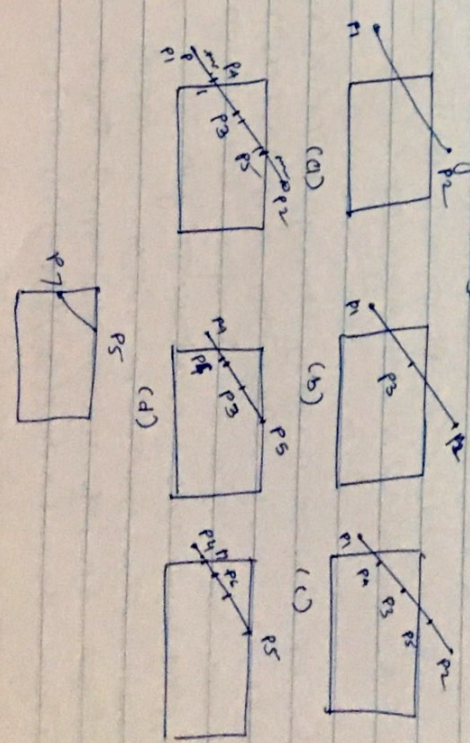 P1
P2
P1
P3
P2
P1
P4
P3
P5
P2
(a)
(b)
(c)
P1
P4
P3
P5
P2
P3
P5
P4
P6
P5
(d)
P7
P5